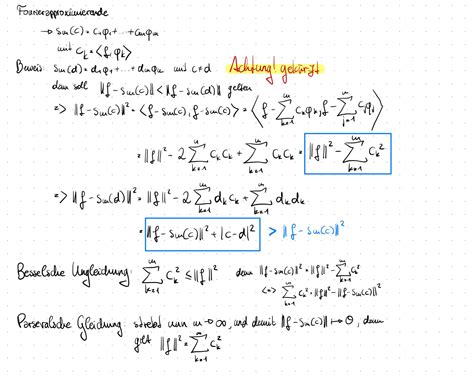 Fourierapproximierende
→ Sm(c) = c₁φ₁ + ... + cmφm
mit cₖ = <f, φₖ>
Beweis: Sm(d) = d₁φ₁ + ... + dmφm mit c≠d Achtung! gekürzt
dann soll ||f - Sm(c)|| < ||f - Sm(d)|| gelten
=> ||f - Sm(c)||² = <f - Sm(c), f - Sm(c)> = <f - ∑_{k=1}^{m} cₖφₖ, f - ∑_{j=1}^{m} cⱼφⱼ>
= ||f||² - 2 ∑_{k=1}^{m} cₖcₖ + ∑_{k=1}^{m} cₖcₖ = ||f||² - ∑_{k=1}^{m} cₖ²
=> ||f - Sm(d)||² = ||f||² - 2 ∑_{k=1}^{m} dₖcₖ + ∑_{k=1}^{m} dₖdₖ
= ||f - Sm(c)||² + |c-d|² > ||f - Sm(c)||²
Besselsche Ungleichung: ∑_{k=1}^{m} cₖ² ≤ ||f||² denn ||f - Sm(c)||² = ||f||² - ∑_{k=1}^{m} cₖ²
<=> ∑_{k=1}^{m} cₖ² = ||f||² - ||f - Sm(c)||²
Parsevalsche Gleichung: strebt nun m → ∞, und damit ||f - Sm(c)|| → 0, dann
gilt ||f||² = ∑_{k=1}^{m} cₖ²